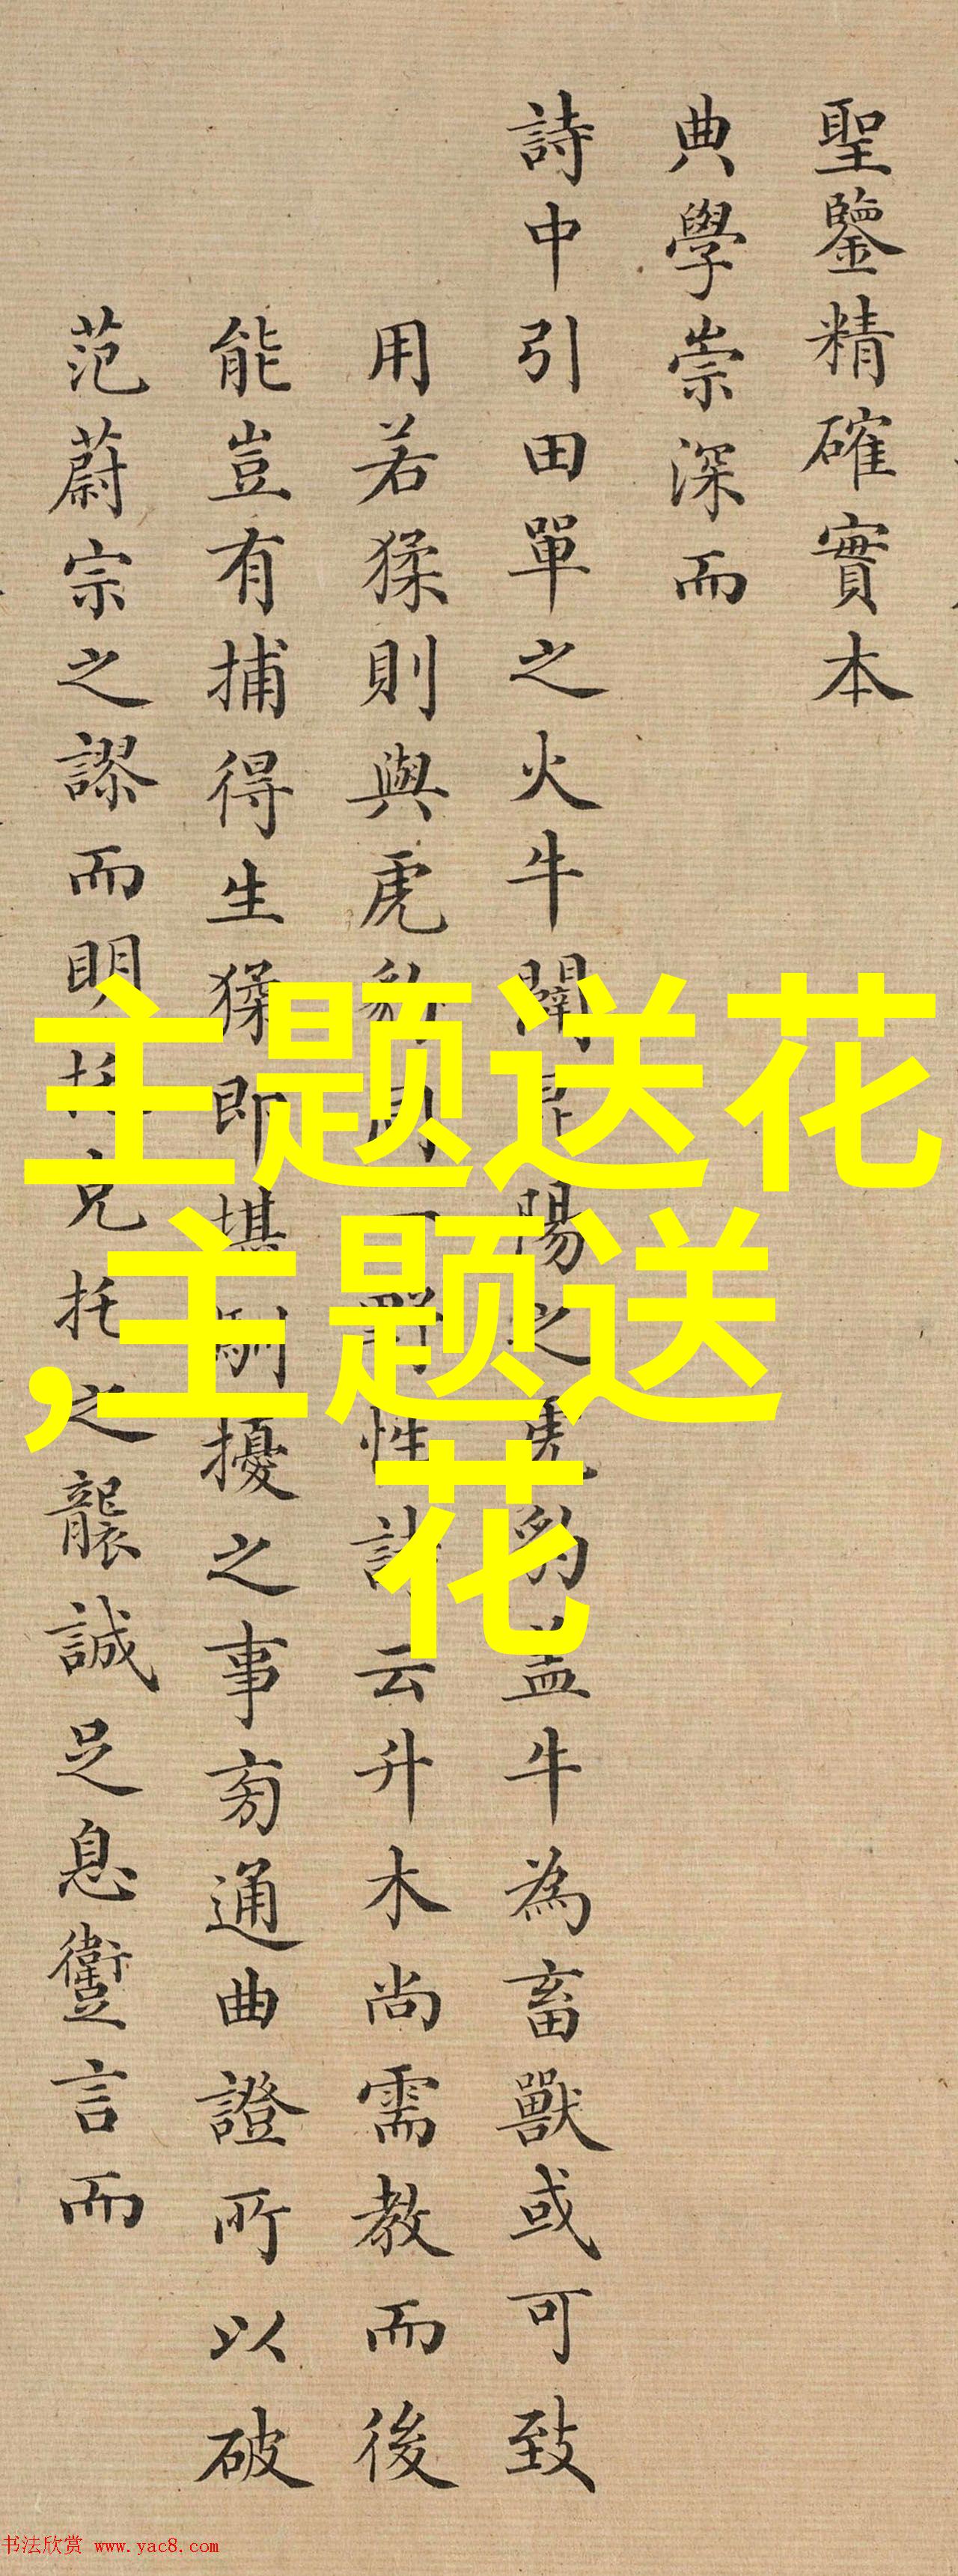 聖鑒精確實本
典學崇深而
詩中引田單之火牛闘昆陽之虎豹盖牛為畜獸或可致
用若猱則與虎豹同一野性詩云升木尚需教而後
能豈有捕得生猱即堪馴擾之事旁通曲證所以破
范蔚宗之謬而明托克托之襲誠足息讆言而
主题送花
,主题送
花
书法欣赏 www.yac8.com